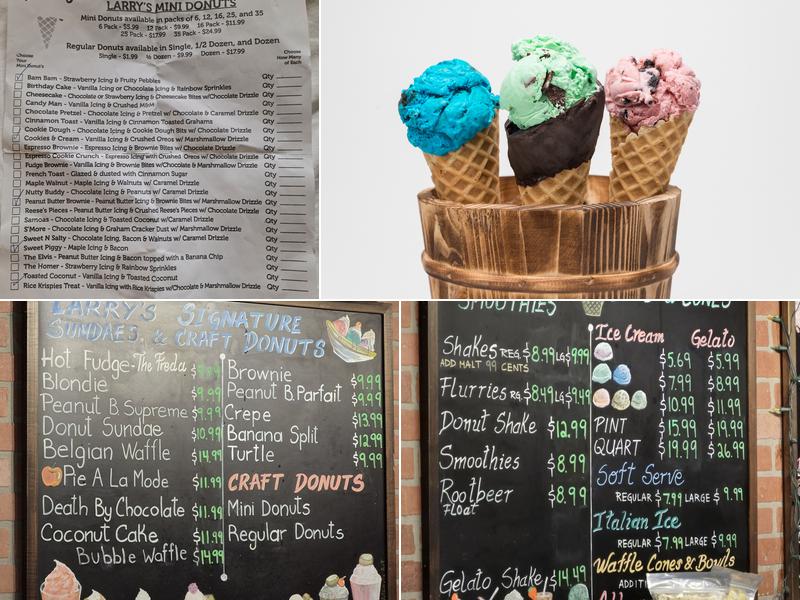 LARRY'S MINI DONUTS
Mini Donuts available in packs of 6, 12, 16, 25, and 35
6 Pack - $5.99 12 Pack - $9.99 16 Pack - $11.99
25 Pack - $17.99 35 Pack - $24.99
Regular Donuts available in Single, 1/2 Dozen, and Dozen
Single - $1.99 ½ Dozen - $9.99 Dozen - $17.99
Choose Your Mini Donut's
Choose How Many of Each
Bam Bam - Strawberry Icing & Fruity Pebbles Qty
Birthday Cake - Vanilla Icing or Chocolate Icing & Rainbow Sprinkles Qty
Cheesecake - Chocolate or Strawberry Icing & Cheesecake Bites w/Chocolate Drizzle Qty
Candy Man - Vanilla Icing & Crushed M&M Qty
Chocolate Pretzel - Chocolate Icing & Pretzel w/ Chocolate & Caramel Drizzle Qty
Cinnamon Toast - Vanilla Icing & Cinnamon Toasted Grahams Qty
Cookie Dough - Chocolate Icing & Cookie Dough Bits w/ Chocolate Drizzle Qty
Cookies & Cream - Vanilla Icing & Crushed Oreos w/ Marshmallow Drizzle Qty
Espresso Brownie - Espresso Icing & Brownie Bites w/ Chocolate Drizzle Qty
Espresso Cookie Crunch - Espresso Icing with Crushed Oreos w/ Chocolate Drizzle Qty
Fudge Brownie - Vanilla Icing & Brownie Bites w/Chocolate Drizzle Qty
French Toast - Glazed & dusted with Cinnamon Sugar Qty
Maple Walnut - Maple Icing & Walnuts w/ Caramel Drizzle Qty
Nutty Buddy - Chocolate Icing & Peanuts w/ Caramel Drizzle Qty
Peanut Butter Brownie - Peanut Butter Icing & Brownie Bites w/ Marshmallow Drizzle Qty
Reese's Pieces - Peanut Butter Icing & Crushed Reese's Pieces w/ Chocolate Drizzle Qty
Samoas - Chocolate Icing & Toasted Coconut w/ Caramel Drizzle Qty
S'More - Chocolate Icing & Graham Cracker Dust w/ Marshmallow Drizzle Qty
Sweet N Salty - Chocolate Icing, Bacon & Walnuts w/ Caramel Drizzle Qty
Sweet Piggy - Maple Icing & Bacon Qty
The Elvis - Peanut Butter Icing & Bacon topped with a Banana Chip Qty
The Homer - Strawberry Icing & Rainbow Sprinkles Qty
Toasted Coconut - Vanilla Icing & Toasted Coconut Qty
Rice Krispies Treat - Vanilla Icing with Rice Krispies w/Chocolate & Marshmallow Drizzle Qty
LARRY'S SIGNATURE
SUNDAES, & CRAFT DONUTS
Hot Fudge-The Freda
Blondie $9.99
Peanut B Supreme $9.99
Donut Sundae $10.99
Belgian Waffle $14.99
Pie A La Mode $11.99
Death By Chocolate $11.99
Coconut Cake $11.99
Bubble Waffle $14.99
Brownie $9.99
Peanut B Parfait $9.99
Crepe $13.99
Banana Split $12.99
Turtle $9.99
CRAFT DONUTS
Mini Donuts
Regular Donuts
SMOOTHIES
& CONES
Shakes REG. $8.99 LG $9.99
ADD MALT 99 CENTS
Flurries RG. $8.49 LG $9.49
Donut Shake $12.99
Smoothies $8.99
Rootbeer $8.99
Float
Gelato Shake $14.49
Ice Cream Gelato
$5.69 $5.99
$7.99 $8.99
$10.99 $11.99
PINT $15.99 $19.99
QUART $19.99 $26.99
Soft Serve
REGULAR $7.99 LARGE $9.99
Italian Ice
REGULAR $7.99 LARGE $9.99
Waffle Cones & Bowls